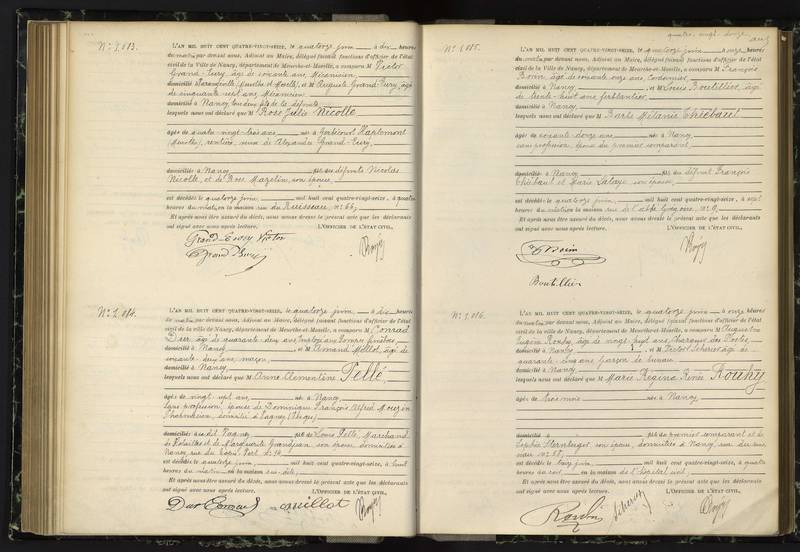 quatre-vingt-douze
N° 1,013.
L'AN MIL HUIT CENT QUATRE-VINGT-SEIZE, le quatorze juin, à dix heures
du matin par devant nous, Adjoint au Maire, délégué faisant fonctions d'officier de l'état
civil de la Ville de NANCY, département de Meurthe-et-Moselle, a comparu M Victor
Grand-Eury, âgé de soixante ans, Mécanicien,
domicilié à (Meurthe et Moselle), et M Auguste Grand-Eury, âgé
de cinquante-sept ans, Mécanicien
domicilié à Nancy, tous deux fils de la défunte
lesquels nous ont déclaré que M Rose Julie Nicolle
âgée de quatre-vingt-trois ans née à
(Moselle), rentière, veuve de Alexandre Grand-Eury,
domiciliée à Nancy fille des défunts Nicolas
Nicolle, et de Rose Mazelin, son épouse,
est décédée le quatorze juin, mil huit cent quatre-vingt-seize, à quatre
heures du matin en la maison rue du Ruisseau, n° 66,
Et après nous être assuré du décès, nous avons dressé le présent acte que les déclarants
ont signé avec nous après lecture. L'OFFICIER DE L'ÉTAT CIVIL,
Grand-Eury Victor
Grand'Eury
N° 1,014.
L'AN MIL HUIT CENT QUATRE-VINGT-SEIZE, le quatorze juin, à dix heures
du matin par devant nous, Adjoint au Maire, délégué faisant fonctions d'officier de l'état
civil de la ville de NANCY, département de Meurthe-et-Moselle, a comparu M Conrad
âgé de quarante-deux ans, employé aux Pompes funèbres
domicilié à Nancy, et M Armand âgé de
soixante-deux ans, maçon,
domicilié à Nancy
lesquels nous ont déclaré que M Anne Clémentine Pellé,
âgée de vingt sept ans, née à Nancy,
sans profession, épouse de Dominique François Alfred
Pharmacien, domicilié à Pagney
domiciliée audit Pagney fille de Louis Pellé, Marchand
de Volailles et de Marguerite Grandjean, son épouse, domiciliés à
Nancy, rue du
est décédée le quatorze juin, mil huit cent quatre-vingt-seize, à huit
heures du matin en la maison sus-dite,
Et après nous être assuré du décès, nous avons dressé le présent acte que les déclarants
ont signé avec nous après lecture. L'OFFICIER DE L'ÉTAT CIVIL,
N° 1,015.
L'AN MIL HUIT CENT QUATRE-VINGT-SEIZE, le quatorze juin, à onze heures
du matin par devant nous, Adjoint au Maire, délégué faisant fonctions d'officier de l'état
civil de la Ville de NANCY, département de Meurthe-et-Moselle, a comparu M François
Boin, âgé de soixante onze ans, Cordonnier,
domicilié à Nancy, et M Louis Boutillier, âgé
de trente-huit ans, ferblantier
domicilié à Nancy
lesquels nous ont déclaré que M Barbe Mélanie Thiébaut
âgée de soixante-douze ans née à Nancy
sans profession, épouse du premier comparant,
domiciliée à Nancy fille des défunts François
Thiébaut et Marie Lalaye son épouse,
est décédée le quatorze juin, mil huit cent quatre-vingt-seize, à sept
heures du matin en la maison rue de l'abbé Grégoire, n° 9,
Et après nous être assuré du décès, nous avons dressé le présent acte que les déclarants
ont signé avec nous après lecture. L'OFFICIER DE L'ÉTAT CIVIL,
Boin
Boutillier
N° 1,016.
L'AN MIL HUIT CENT QUATRE-VINGT-SEIZE, le quatorze juin, à onze heures
du matin par devant nous, Adjoint au Maire, délégué faisant fonctions d'officier de l'état
civil de la ville de NANCY, département de Meurthe-et-Moselle, a comparu M Augustin
Eugène Rouhy, âgé de vingt huit ans,
domicilié à Nancy, et M Victor âgé de
quarante-cinq ans, garçon de bureau
domicilié à Nancy,
lesquels nous ont déclaré que M Marie Régina Renée Rouhy
âgée de trois mois née à Nancy
domiciliée à fille du premier comparant et de
Sophie Sternberger, son épouse, domiciliés à Nancy, rue
n° 58,
est décédée le treize juin, mil huit cent quatre-vingt-seize, à quatre
heures du soir, en la maison de l'hôpital civil,
Et après nous être assuré du décès, nous avons dressé le présent acte que les déclarants
ont signé avec nous après lecture. L'OFFICIER DE L'ÉTAT CIVIL,